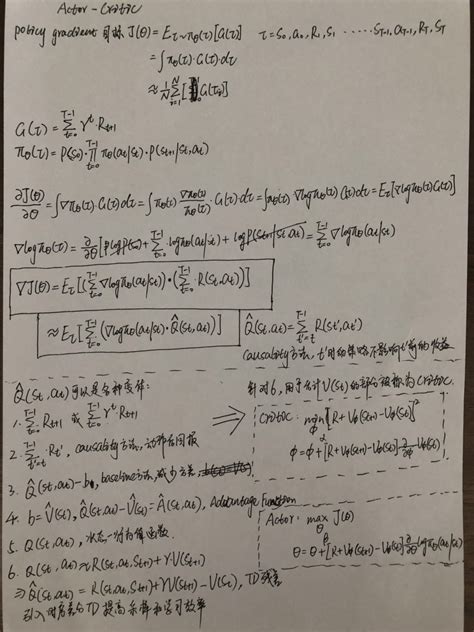 Actor-Critic
policy gradient 目标 J(θ) = E_{τ~π_θ(τ)}[G(τ)]    τ = S₀, a₀, R₁, S₁ ····· S_{T-1}, a_{T-1}, R_T, S_T
= ∫π_θ(τ)·G(τ)·dτ
≈ 1/N Σ_{i=1}^{N}[G(τ_i)]
G(τ) = Σ_{t=0}^{T-1} γ^t·R_{t+1}
π_θ(τ) = P(S₀)·Π_{t=0}^{T-1} π_θ(a_t|s_t)·P(s_{t+1}|s_t,a_t)
∂J(θ)/∂θ = ∫∇π_θ(τ)·G(τ)dτ = ∫π_θ(τ) ∇π_θ(τ)/π_θ(τ)·G(τ)dτ = ∫π_θ(τ)·∇logπ_θ(τ)G(τ)dτ = E_τ[∇logπ_θ(τ)G(τ)]
∇logπ_θ(τ) = ∂/∂θ[logP(S₀) + Σ_{t=0}^{T-1} logπ_θ(a_t|s_t) + logP(s_{t+1}|s_t,a_t)] = Σ_{t=0}^{T-1} ∇logπ_θ(a_t|s_t)
∇J(θ) = E_τ[(Σ_{t=0}^{T-1} ∇logπ_θ(a_t|s_t))·(Σ_{t=0}^{T-1} R(s_t,a_t))]
≈ E_τ[Σ_{t=0}^{T-1}(∇logπ_θ(a_t|s_t)·Q̂(s_t,a_t))]    Q̂(s_t,a_t) = Σ_{t'=t}^{T-1} R(s_t',a_t')
causality方法, t'时的策略不影响t前的收益
Q̂(s_t,a_t)可以是各种变体:
1. Σ_{t=0}^{T-1} R_{t+1} 或 Σ_{t=0}^{T-1} γ^t·R_{t+1}
2. Σ_{t'=t}^{T-1} R_t', causality方法, 动作后回报
3. Q̂(s_t,a_t)-b, baseline方法, 减少方差
4. b=V̂(s_t), Q̂(s_t,a_t)-V̂(s_t)=Â(s_t,a_t), Advantage Function
5. Q(s_t,a_t), 状态-行为值函数
6. Q(s_t,a_t)≈R(s_t,a_t,s_{t+1})+γ·V(s_{t+1})
⇒ Q̂(s_t,a_t) = R(s_t,a_t,s_{t+1})+γV(s_{t+1})-V(s_t), TD残差
引入时序差分TD提高采样和学习效率
⇒
针对6, 用于估计V(s_t)的部分被称为Critic.
Critic: min_ϕ [R+V_ϕ(s_{t+1})-V_ϕ(s_t)]²
ϕ = ϕ + α[R+V_ϕ(s_{t+1})-V_ϕ(s_t)] ∂/∂ϕ V_ϕ(s_t)
Actor: max_θ J(θ)
θ = θ + β[R+V_ϕ(s_{t+1})-V_ϕ(s_t)] ∂/∂θ logπ_θ(a_t|s_t)